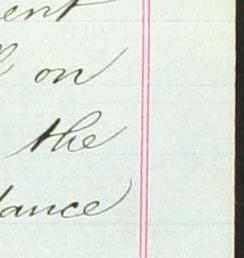 ent
on
the
dance